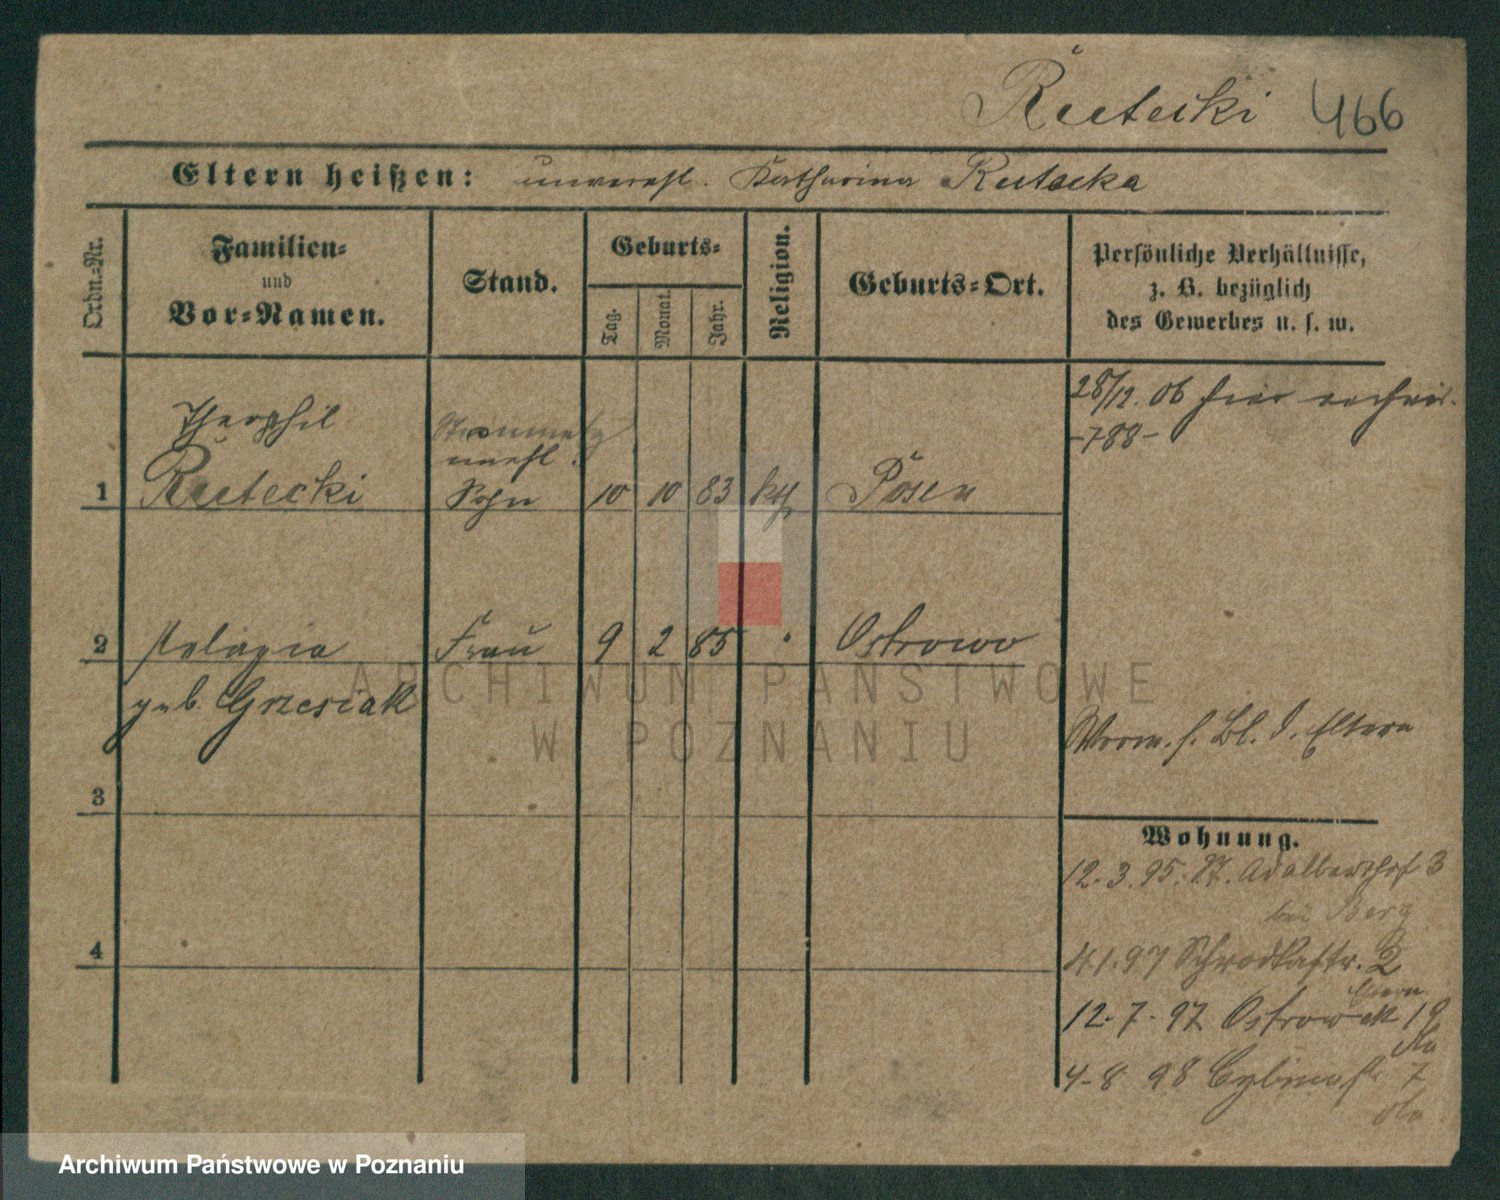 Rutecki 466
Eltern heißen: unverehl. Katharina Rutecka
Ordn.-Nr.
Familien-
und
Vor-Namen.
Stand.
Geburts-
Tag.
Monat.
Jahr.
Religion.
Geburts-Ort.
Persönliche Verhältnisse,
z. B. bezüglich
des Gewerbes u. s. w.
28/12. 06 hier
-788-
Theophil
unehl.
1 Rutecki Sohn 10 10 83 kth Posen
2 Pelagia Frau 9 2 85 " Ostrowo
geb. Grzesiak
ARCHIWUM PAŃSTWOWE
W POZNANIU
Verm. s. Bl. d. Eltern
3
Wohnung.
12.3.95. St. Adalberthof 3
bei Berg
4
4.1.97 Schrodkastr. 2
12.7.97 Ostrowek 19
4-8 98 Cybinastr 7
Archiwum Państwowe w Poznaniu